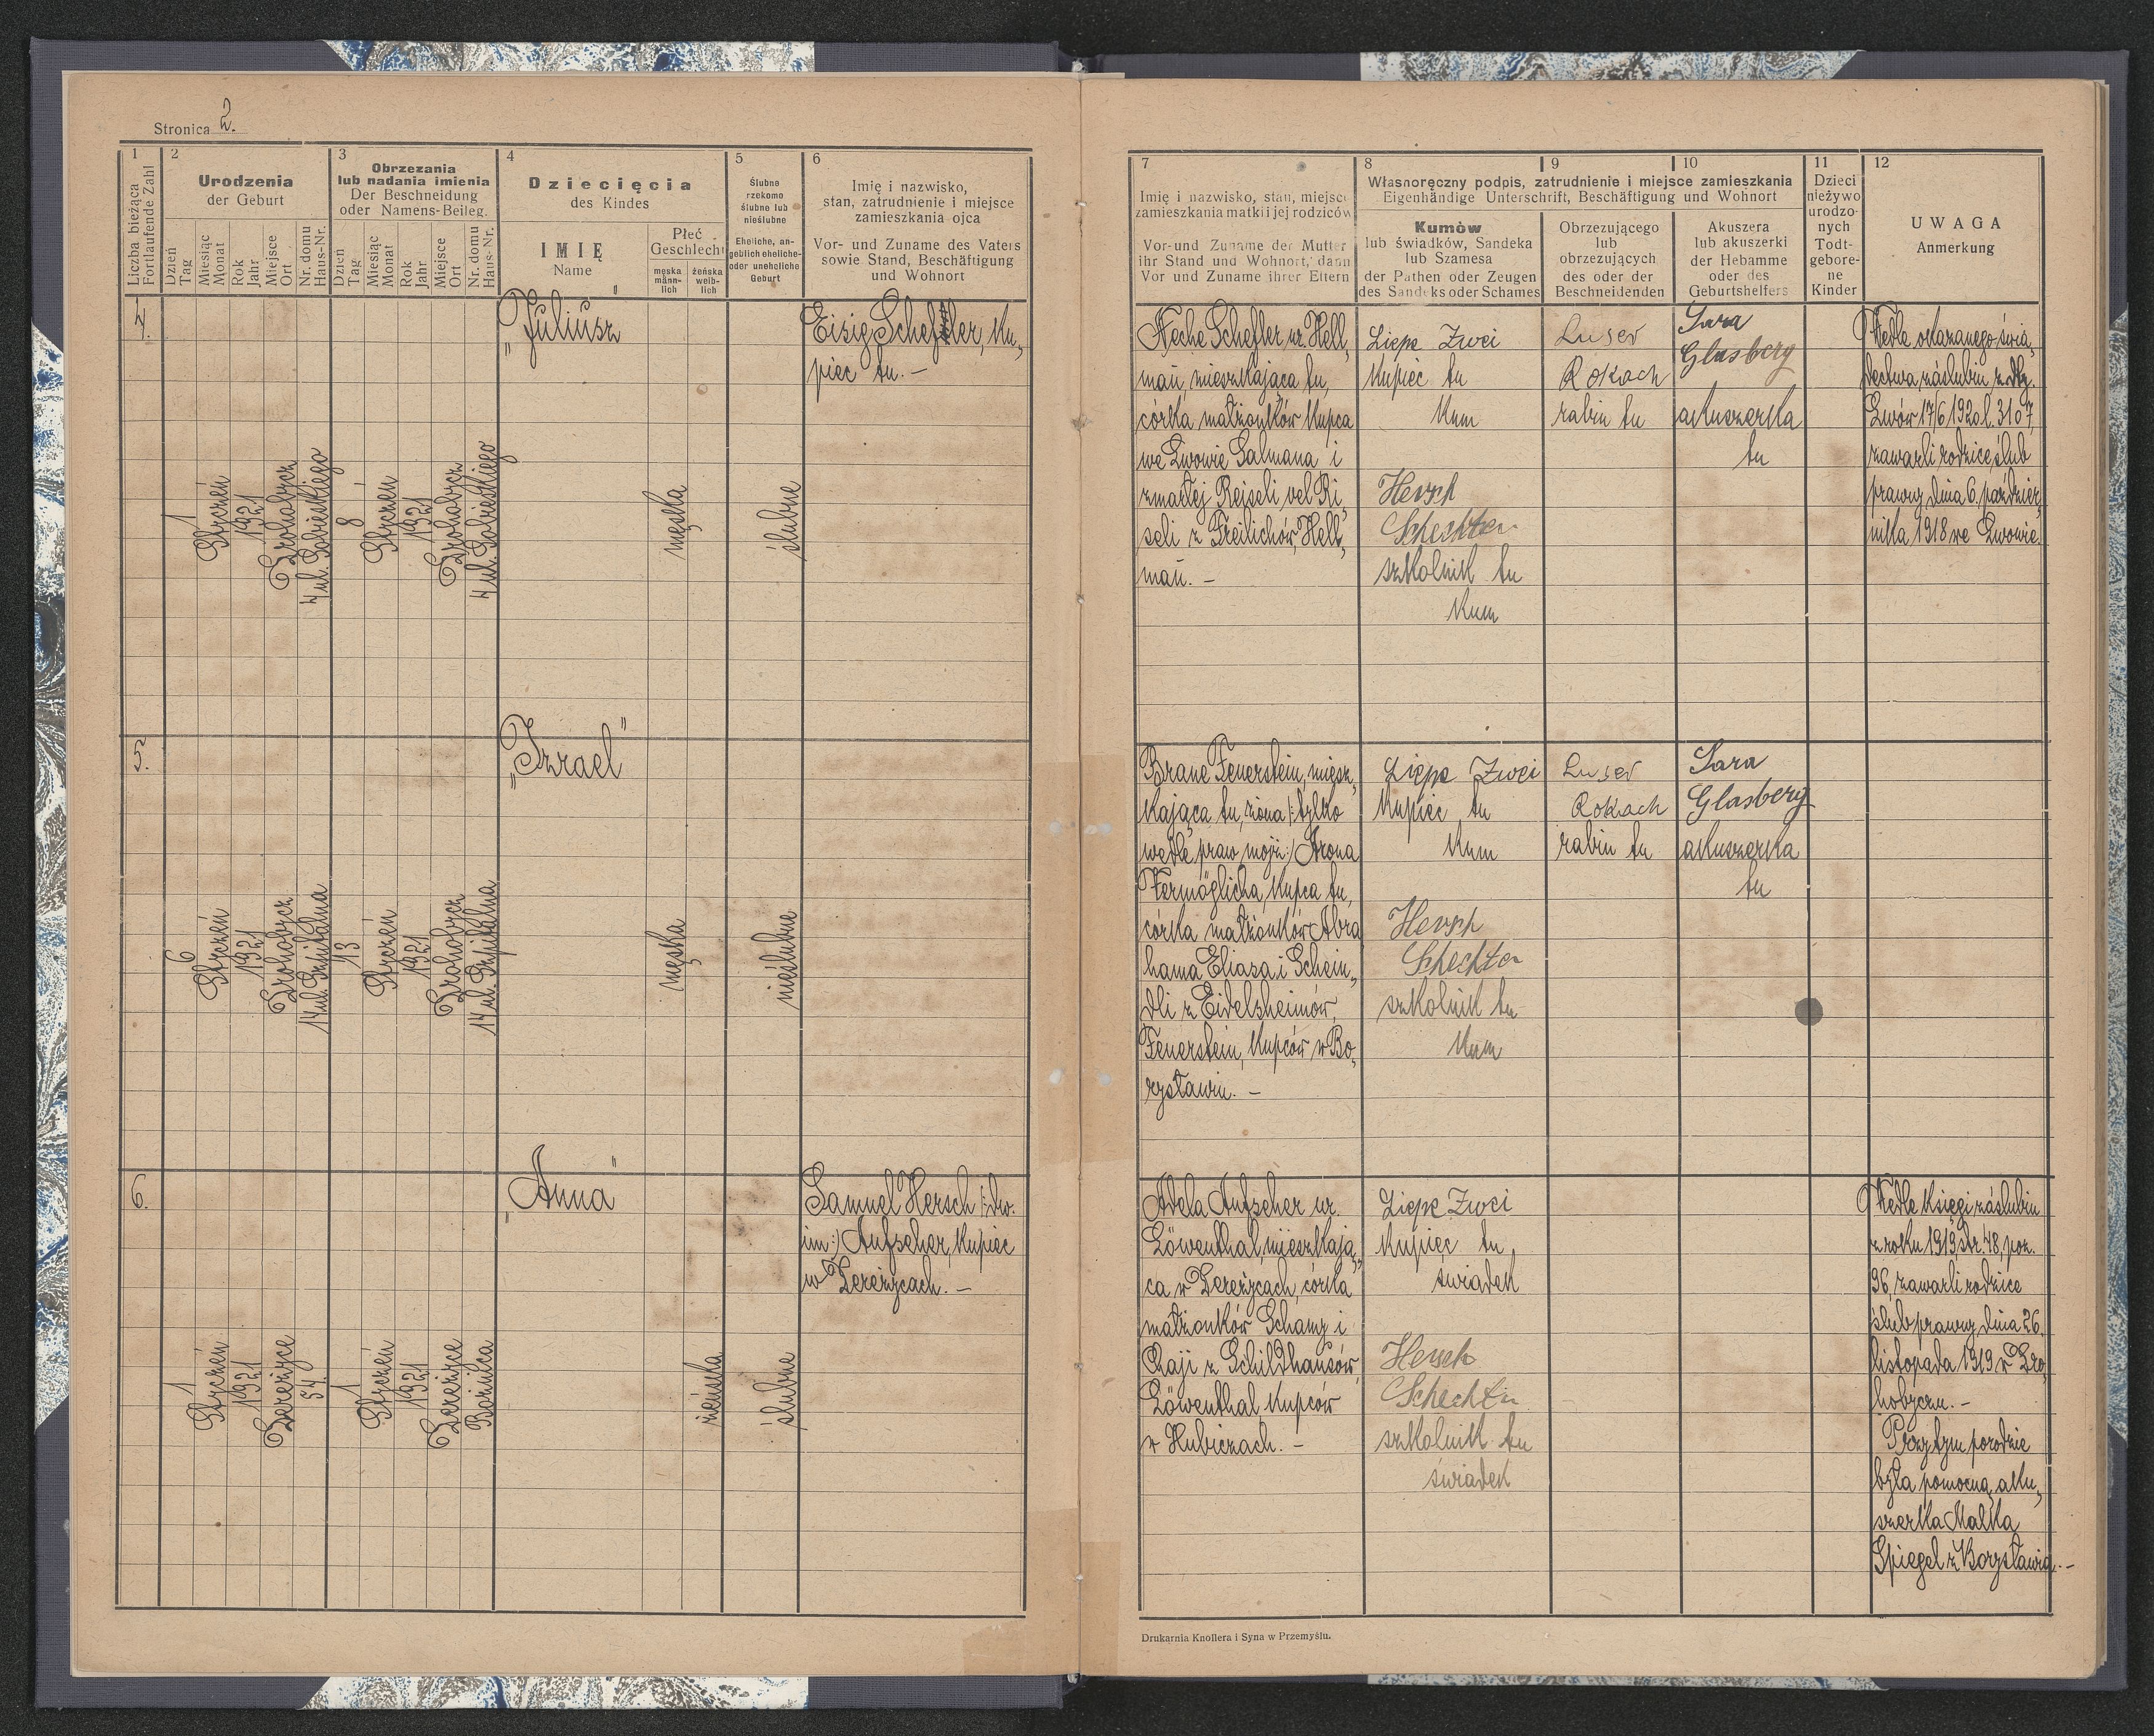 Stronica 2.
1
Liczba bieżąca
Fortlaufende Zahl
2
Urodzenia
der Geburt
Dzień
Tag
Miesiąc
Monat
Rok
Jahr
Miejsce
Ort
Nr. domu
Haus-Nr.
3
Obrzezania
lub nadania imienia
Der Beschneidung
oder Namens-Beileg.
Dzień
Tag
Miesiąc
Monat
Rok
Jahr
Miejsce
Ort
Nr. domu
Haus-Nr.
4
Dziecięcia
des Kindes
IMIĘ
Name
Płeć
Geschlecht
męska
männ-
lich
żeńska
weib-
lich
5
Ślubne
rzekomo
ślubne lub
nieślubne
Eheliche, an-
geblich eheliche-
oder uneheliche
Geburt
6
Imię i nazwisko,
stan, zatrudnienie i miejsce
zamieszkania ojca
Vor- und Zuname des Vaters
sowie Stand, Beschäftigung
und Wohnort
7
Imię i nazwisko, stan, miejsce
zamieszkania matki i jej rodziców
Vor-und Zuname der Mutter
ihr Stand und Wohnort, dann
Vor und Zuname ihrer Eltern
8
9
10
Własnoręczny podpis, zatrudnienie i miejsce zamieszkania
Eigenhändige Unterschrift, Beschäftigung und Wohnort
Kumów
lub świadków, Sandeka
lub Szamesa
der Pathen oder Zeugen
des Sandeks oder Schames
Obrzezującego
lub
obrzezujących
des oder der
Beschneidenden
Akuszera
lub akuszerki
der Hebamme
oder des
Geburtshelfers
11
Dzieci
nieżywo
urodzo-
nych
Todt-
gebore-
ne
Kinder
12
UWAGA
Anmerkung
4.
1
Styczeń
1921
Drohobycz
4 ul. Sobieskiego
8
Styczeń
1921
Drohobycz
4 ul. Sobieskiego
„Juliusz"
męska
ślubne
Eisig Scheffler, ku„
piec tu. —
Neche Schefler ur. Hell„
man, mieszkająca tu,
córka małżonków kupca
we Lwowie Salmana i
zmarłej Reiseli vel Ri„
seli z Freilichów, Hell„
man. —
Liepe Zwei
kupiec tu
kum
Hersch
Schechter
szkolnik tu
kum
Luser
Rokach
rabin tu
Sara
Glasberg
akuszerka
tu
Wedle okazanego świa„
dectwa zaślubin z dty.
Lwów 17/6 1920 l. 3107,
zawarli rodzice ślub
prawny dnia 6. paździer„
nika 1918 we Lwowie.
5.
6
Styczeń
1921
Drohobycz
14 ul. Szpitalna
13
Styczeń
1921
Drohobycz
14 ul. Szpitalna
„Izrael"
męska
nieślubne
Brane Feuerstein, miesz„
kająca tu, żona /:tylko
wedle praw mojż:/ Arona
Vermöglicha, kupca tu,
córka małżonków Abra
hama Eliasa i Schein„
dli z Eidelsheimów,
Feuerstein, kupców w Bo„
rysławiu. —
Liepe Zwei
kupiec tu
kum
Hersch
Schechter
szkolnik tu
kum
Luser
Rokach
rabin tu
Sara
Glasberg
akuszerka
tu
6.
1
Styczeń
1921
Dereżyce
54.
1
Styczeń
1921
Dereżyce
Bożnica
„Anna"
żeńska
ślubne
Samuel Hersch /:dw.
im:/ Aufscher, kupiec
w Dereżycach. —
Adela Aufscher ur.
Löwenthal, mieszkają„
ca w Dereżycach, córka
małżonków Schamy i
Chaji z Schildhausów,
Löwenthal, kupców
w Hubiczach. —
Liepe Zwei
kupiec tu
świadek
Hersch
Schechter
szkolnik tu
świadek
Wedle księgi zaślubin
z roku 1919, str. 48, poz.
96, zawarli rodzice
ślub prawny dnia 26.
listopada 1919 w Dro„
hobyczu. —
Przy tym porodzie
była pomocną aku„
szerka Malka
Spiegel z Borysławia. —
Drukarnia Knollera i Syna w Przemyślu.